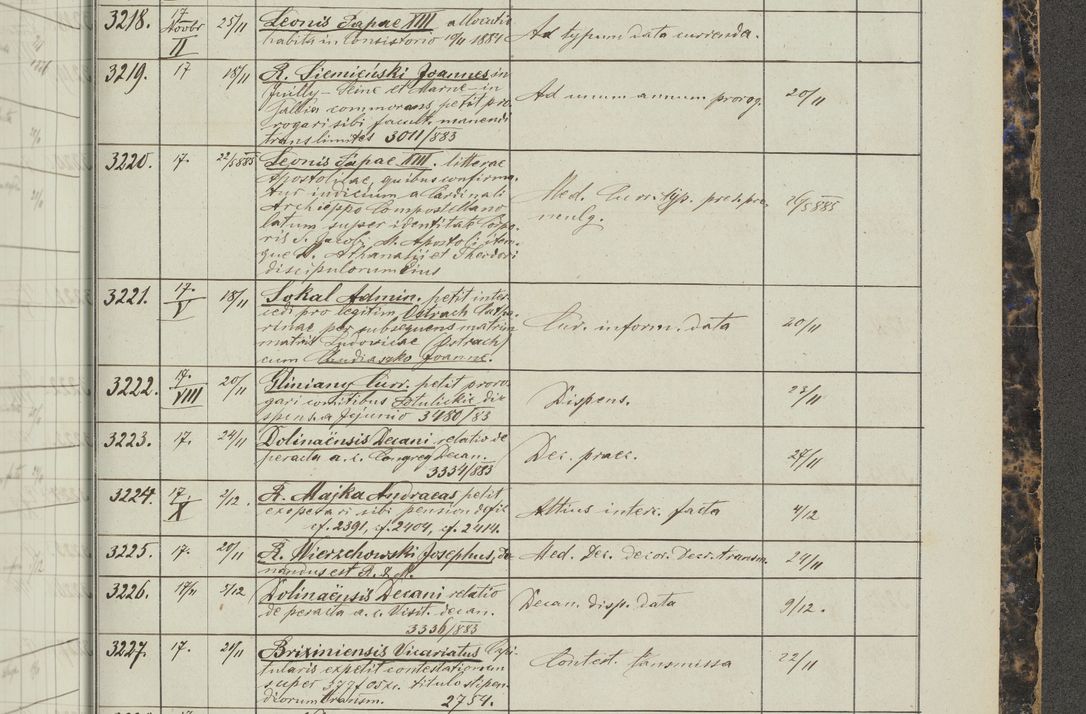 3218. 17 Novbr II 25/11 Leonis Papae XIII allocutio
habita in Consistorio 10/11 1884 Ad typum data currenda.
3219. 17 18/11 R. Siemieński Joannes in
Juilly – Seine et Marne – in
Gallia commorans, petit pro-
rogari sibi facult. manendi
trans limites 3011/883
Ad unum annum prorog. 20/11
3220. 17. Leonis Papae XIII. litterae
Apostolicae, quibus confirma-
tur iudicium a Cardinali
Archieppo Compostellano
latum super identitate Corpo-
ris S. Jacobi M. Apostoli item-
que S. Athanasii et Theodori
discipulorum eius
3221. 17. V 18/11 Sokal Admin. petit inter-
cedi pro legitim. Ostrach Catha-
rinae per subsequens matrim.
matris Ludovicae Ostrach
cum Joanne.
Cur. inform. data 20/11
3222. 17. VIII 20/11 Gliniany Curr. petit proro-
gari comitibus Potulickie dis-
pens. a jejunio 3480/83
Dispens. 23/11
3223. 17. 24/11 Dolinaënsis Decani relatio de
peracta a. c. Congreg. Decan.
3334/883
Dec. praec. 27/11
3224. 17. X 2/12. R. Majka Andraeas petit
sibi pension. defic.
cf. 2391, cf. 2404, cf. 2414.
Altius interc. facta 4/12
3225. 17. 20/11 R. Wierzchowski Josephus, do-
nandus est R. & M.
Med. Dec. decor. Decr. transm. 24/11
3226. 17/11 2/12 Dolinaënsis Decani relatio
de peracta a. c. Visit. decan.
3336/883
Decan. disp. data 9/12.
3227. 17. 21/11 Brixiniensis Vicariatus Capi-
tularis expetit contestationem
super titulo stipen-
diorum transm. 2754.
Contest. transmissa 22/11